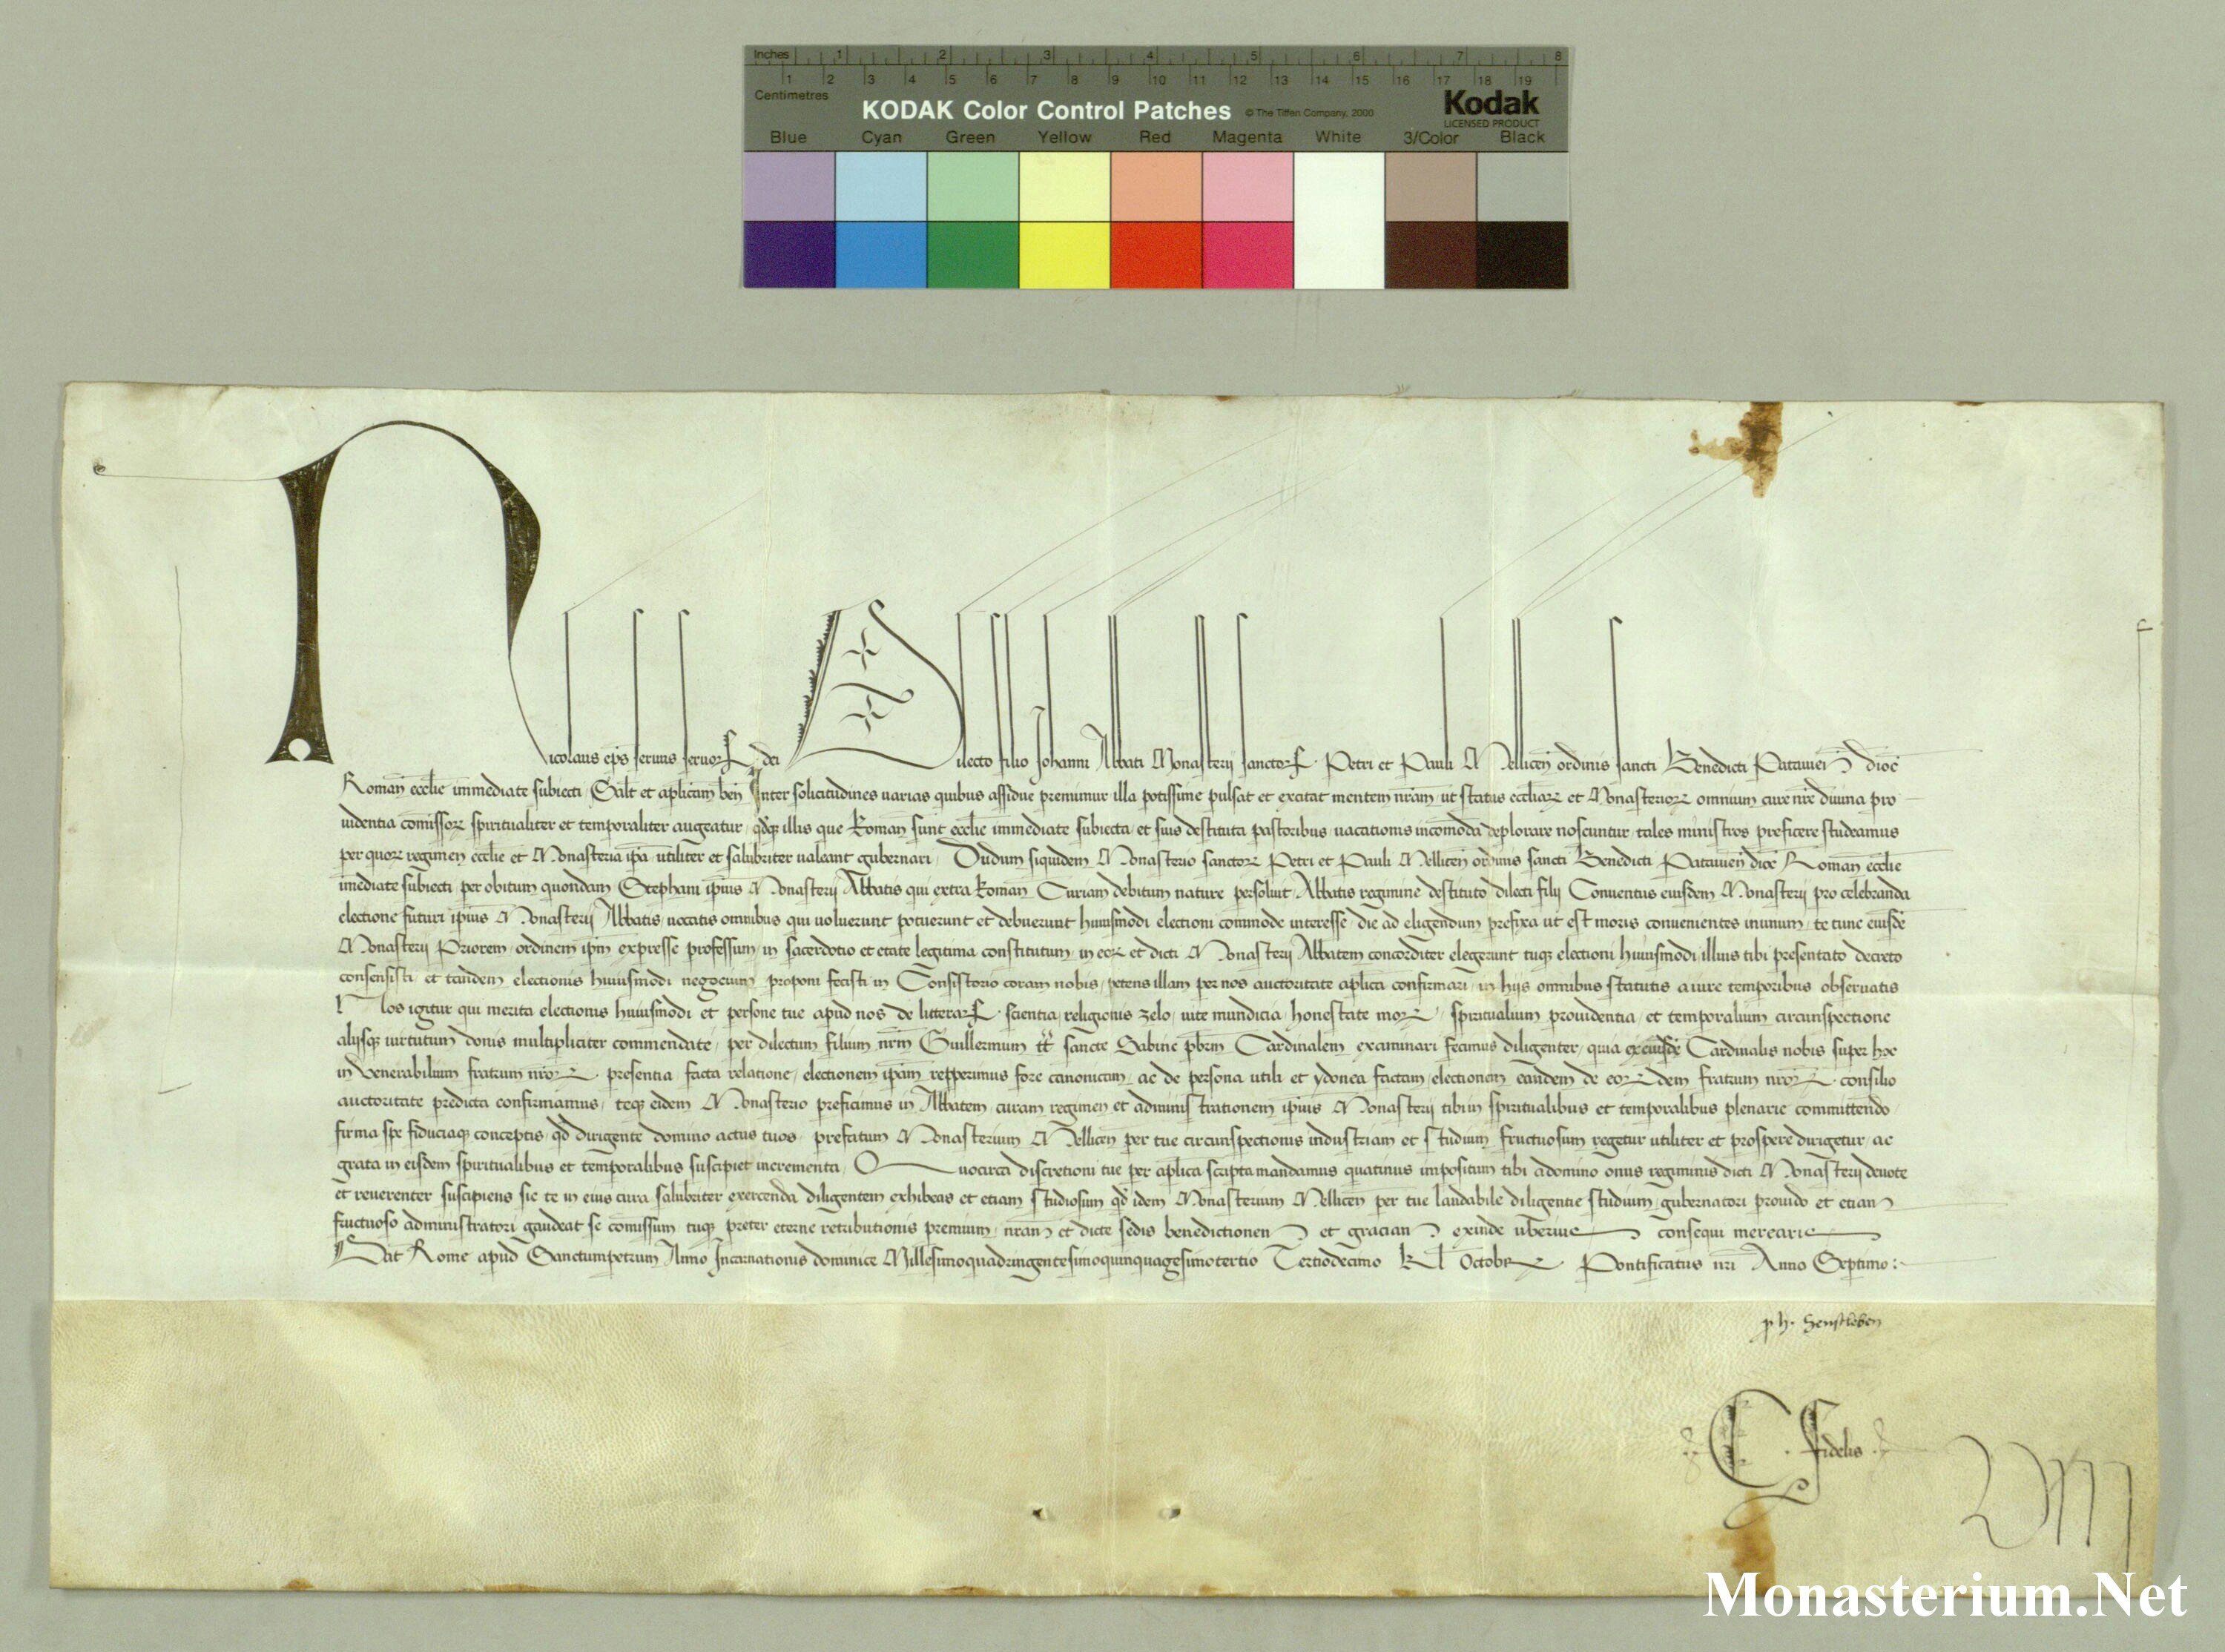 Inches 1 2 3 4 5 6 7 8
1 2 3 4 5 6 7 8 9 10 11 12 13 14 15 16 17 18 19
Centimetres
KODAK Color Control Patches © The Tiffen Company, 2000 Kodak
LICENSED PRODUCT
Blue Cyan Green Yellow Red Magenta White 3/Color Black
Nicolaus ep̄s seruus seruoꝝ dei Dilecto filio Johanni Abbati Monasterij sanctoꝝ Petri et Pauli Mellicen̄ ordinis sancti Benedicti Patauien̄ dioc̄
Roman̄ eccl̄ie immediate subiecti Salt̄ et apl̄icam ben̄ Inter solicitudines uarias quibus assidue premimur illa potissime pulsat et excitat mentem nr̄am ut status eccl̄iaꝝ et Monasterioꝝ omnium cure nr̄e diuina pro
uidentia cōmissoꝝ spiritualiter et temporaliter augeatur qd̄qꝫ illis que Roman̄ sunt eccl̄ie immediate subiecta et suis destituta pastoribus uacationis incōmoda deplorare noscuntur tales ministros preficere studeamus
per quoꝝ regimen eccl̄ie et Monasteria ip̄a utiliter et salubriter ualeant gubernari Dudum siquidem Monasterio sanctoꝝ Petri et Pauli Mellicen̄ ordinis sancti Benedicti Patauien̄ dioc̄ Roman̄ eccl̄ie
im̄ediate subiecti per obitum quondam Stephani ip̄ius Monasterij Abbatis qui extra Roman̄ Curiam debitum nature persoluit Abbatis regimine destituto dilecti filij Conuentus eiusdem Monasterij pro celebranda
electione futuri ip̄ius Monasterij Abbatis uocatis omnibus qui uoluerunt potuerunt et debuerunt huiusmodi electioni commode interesse die ad eligendum prefixa ut est moris conuenientes inunum te tunc eiusdē
Monasterij Priorem ordinem ip̄m expresse professum in sacerdotio et etate legitima constitutum in eoꝝ et dicti Monasterij Abbatem concorditer elegerunt tuqꝫ electioni huiusmodi illius tibi presentato decreto
consensisti et tandem electionis huiusmodi negocium proponi fecisti in Consistorio coram nobis petens illam per nos auctoritate apl̄ica confirmari in hijs omnibus statutis a iure temporibus obseruatis
Nos igitur qui merita electionis huiusmodi et persone tue apud nos de litteraꝝ scientia religionis zelo uite mundicia honestate moꝝ spiritualium prouidentia et temporalium circunspectione
alijsqꝫ uirtutum donis multipliciter commendate per dilectum filium nr̄m Guillermum tt̄ sancte Sabine pb̄rm Cardinalem examinari fecimus diligenter quia eiusdē Cardinalis nobis super hoc
in Venerabilium fratrum nr̄oꝝ presentia facta relatione electionem ip̄am repperimus fore canonicam ac de persona utili et ydonea factam electionem eandem de eoꝝdem fratrum nr̄oꝝ consilio
auctoritate predicta confirmamus teqꝫ eidem Monasterio preficimus in Abbatem curam regimen et administrationem ip̄ius Monasterij tibi in spiritualibus et temporalibus plenarie committendo
firma spe fiduciaqꝫ conceptis qd̄ dirigente domino actus tuos prefatum Monasterium Mellicen̄ per tue circunspectionis industriam et studium fructuosum regetur utiliter et prospere dirigetur ac
grata in eisdem spiritualibus et temporalibus suscipiet incrementa Quocirca discretioni tue per apl̄ica scripta mandamus quatinus impositum tibi a domino onus regiminis dicti Monasterij deuote
et reuerenter suscipiens sic te in eius cura salubriter exercenda diligentem exhibeas et etiam studiosum qd̄ idem Monasterium Mellicen̄ per tue laudabile diligentie studium gubernatori prouido et etiam
fructuoso administratori gaudeat se cōmissum tuqꝫ preter eterne retributionis premium nr̄am et dicte sedis benedictionem et gratiam exinde uberius consequi merearis
Dat̄ Rome apud Sanctumpetrum Anno Incarnationis dominice Millesimoquadringentesimoquinquagesimotertio Tertiodecimo kl̄ Octobꝝ Pontificatus nr̄i Anno Septimo
ph. Senftleben
C. Fidelis
Monasterium.Net